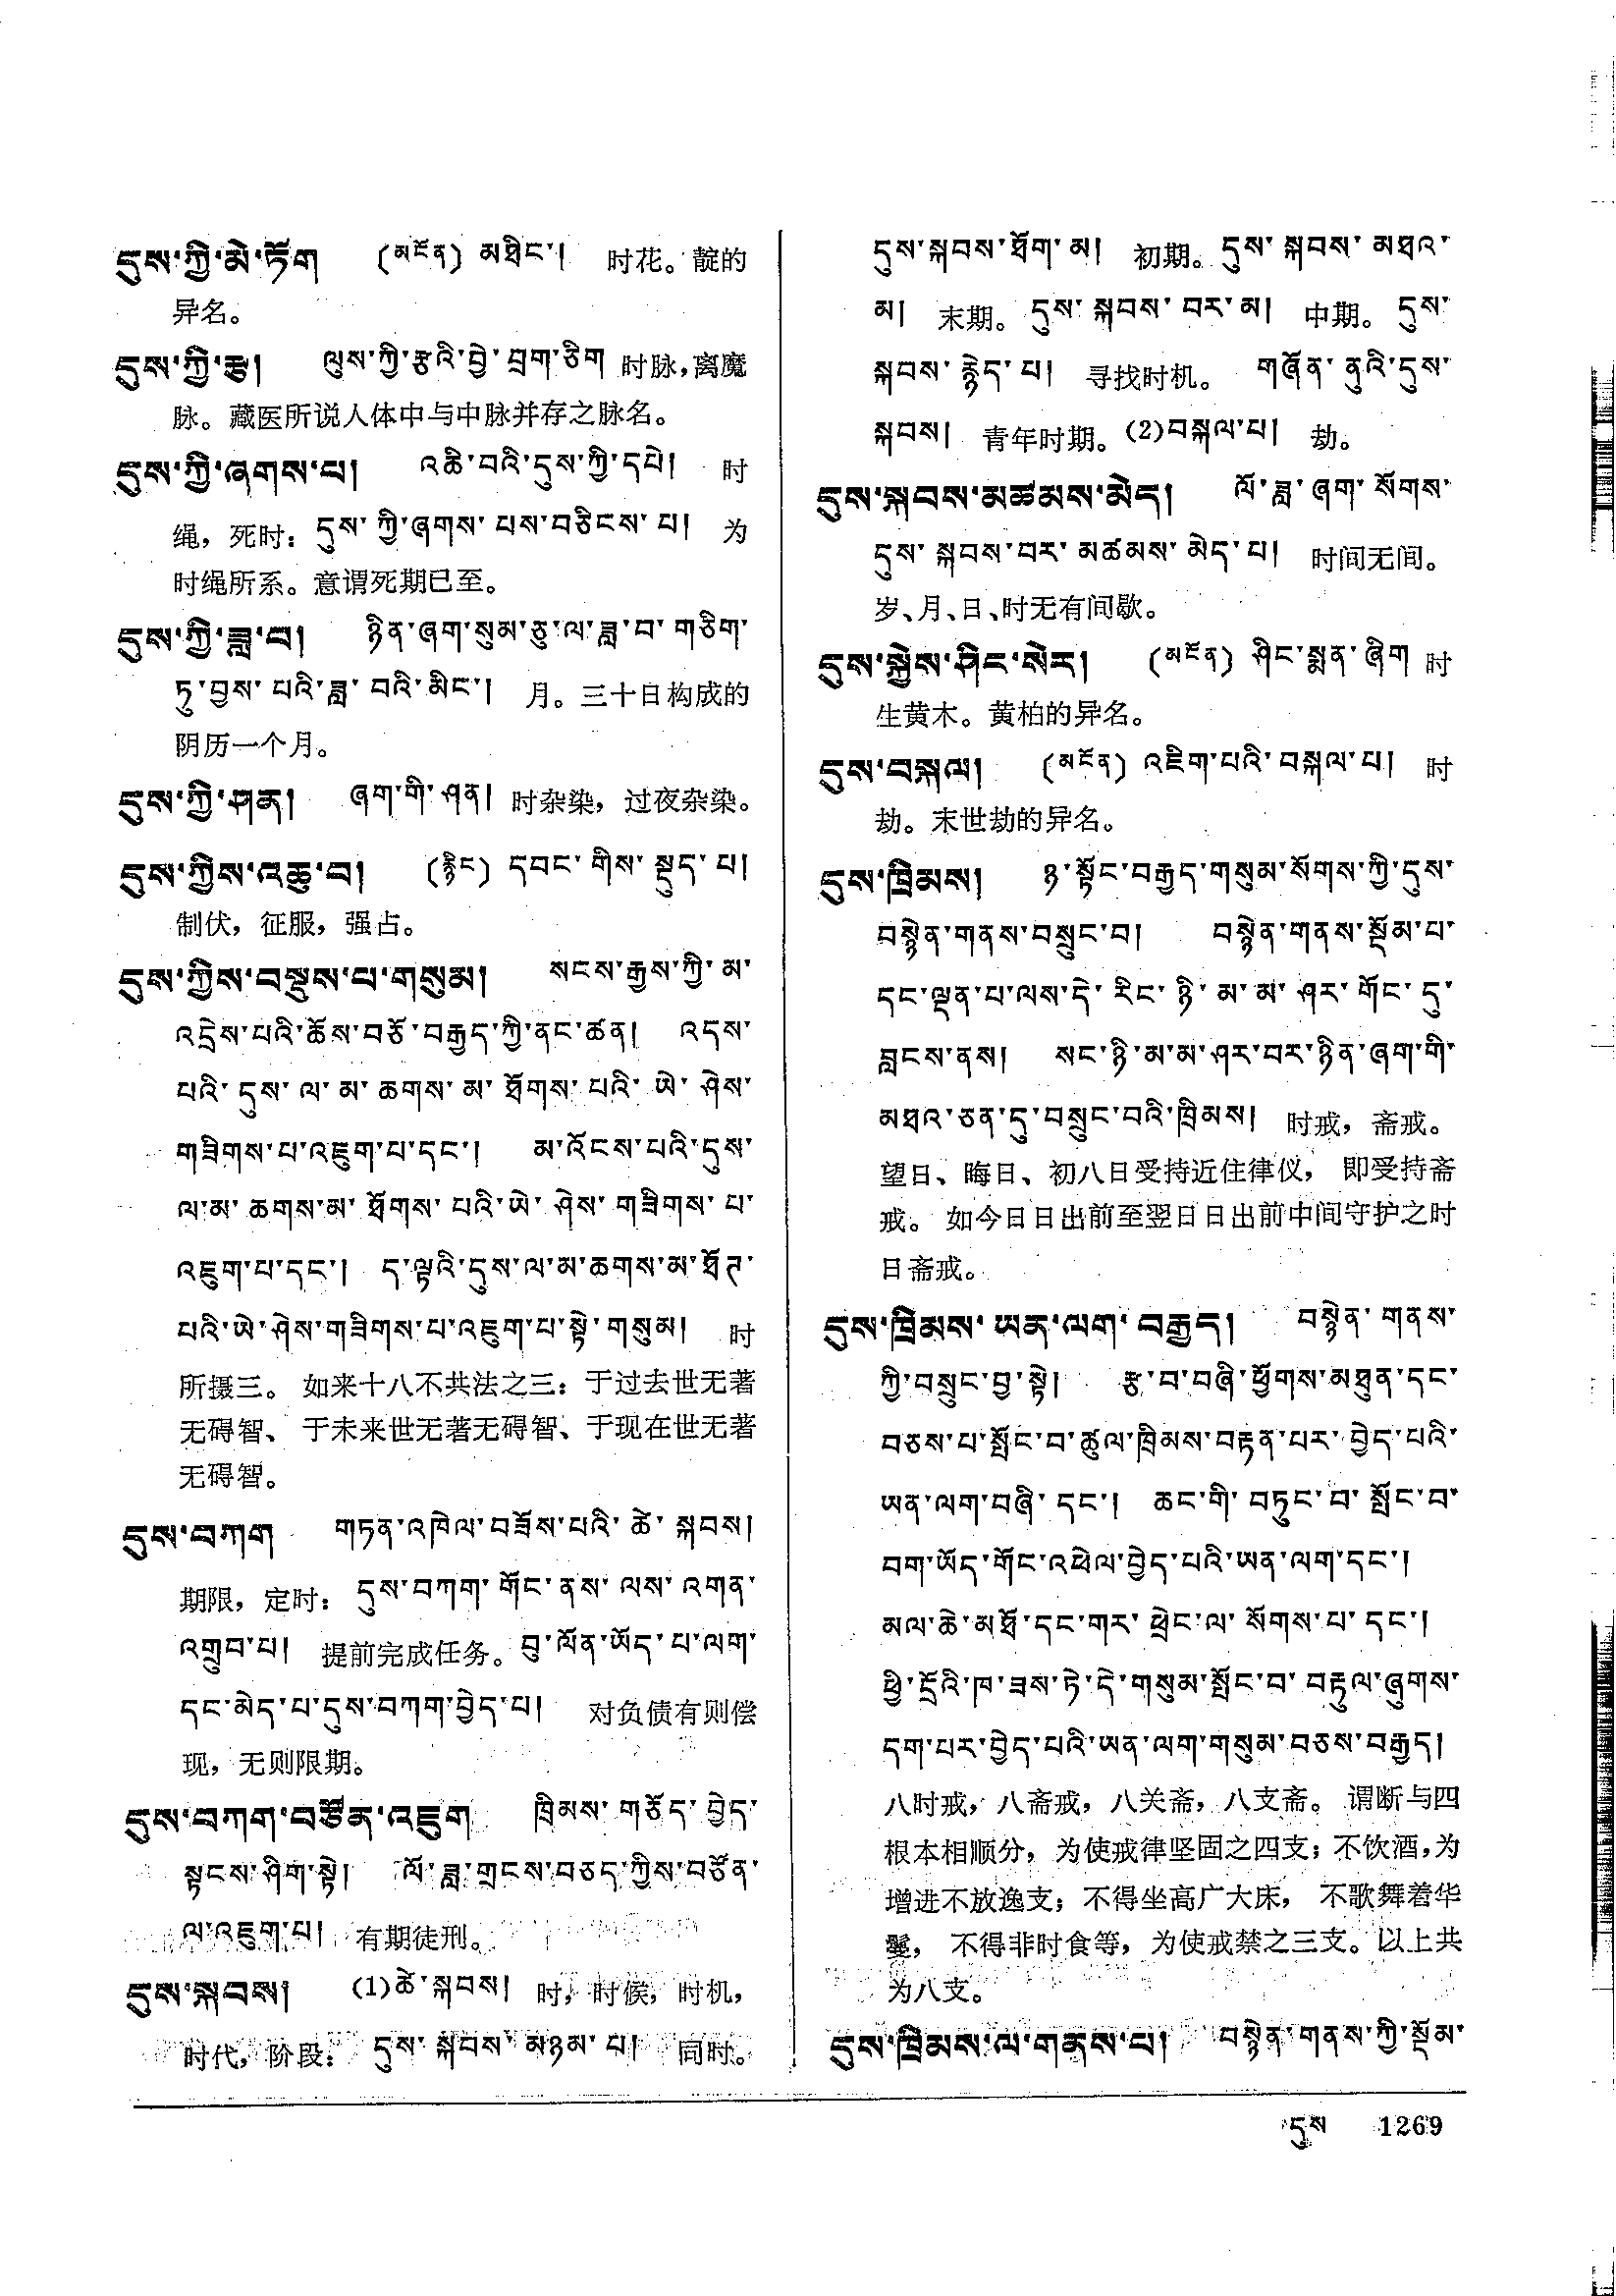 དུས་ཀྱི་མེ་ཏོག (མངོན) མཐིང་། 时花。靛的
异名。
དུས་ཀྱི་རྩ། ལུས་ཀྱི་རྩའི་བྱེ་བྲག་ཅིག 时脉,离魔
脉。藏医所说人体中与中脉并存之脉名。
དུས་ཀྱི་ཞགས་པ། འཆི་བའི་དུས་ཀྱི་དཔེ། 时
绳，死时：དུས་ཀྱི་ཞགས་པས་བཅིངས་པ། 为
时绳所系。意谓死期已至。
དུས་ཀྱི་ཟླ་བ། ཉིན་ཞག་སུམ་ཅུ་ལ་ཟླ་བ་གཅིག་
ཏུ་བྱས་པའི་ཟླ་བའི་མིང་། 月。三十日构成的
阴历一个月。
དུས་ཀྱི་ཤན། ཞག་གི་ཤན། 时杂染，过夜杂染。
དུས་ཀྱིས་འཆུ་བ། (རྙིང) དབང་གིས་སྡུད་པ།
制伏，征服，强占。
དུས་ཀྱིས་བསྡུས་པ་གསུམ། སངས་རྒྱས་ཀྱི་མ་
འདྲེས་པའི་ཆོས་བཅོ་བརྒྱད་ཀྱི་ནང་ཚན། འདས་
པའི་དུས་ལ་མ་ཆགས་མ་ཐོགས་པའི་ཡེ་ཤེས་
གཟིགས་པ་འཇུག་པ་དང་། མ་འོངས་པའི་དུས་
ལ་མ་ཆགས་མ་ཐོགས་པའི་ཡེ་ཤེས་གཟིགས་པ་
འཇུག་པ་དང་། ད་ལྟའི་དུས་ལ་མ་ཆགས་མ་ཐོག་
པའི་ཡེ་ཤེས་གཟིགས་པ་འཇུག་པ་སྟེ་གསུམ། 时
所摄三。如来十八不共法之三：于过去世无著
无碍智、于未来世无著无碍智、于现在世无著
无碍智。
དུས་བཀག གཏན་འཁེལ་བཟོས་པའི་ཚེ་སྐབས།
期限，定时：དུས་བཀག་གོང་ནས་ལས་འགན་
འགྲུབ་པ། 提前完成任务。བུ་ལོན་ཡོད་པ་ལག་
དང་མེད་པ་དུས་བཀག་བྱེད་པ། 对负债有则偿
现，无则限期。
དུས་བཀག་བཙོན་འཇུག ཁྲིམས་གཅོད་བྱེད་
སྟངས་ཤིག་སྟེ། ལོ་ཟླ་གྲངས་བཅད་ཀྱིས་བཙོན་
ལ་འཇུག་པ། 有期徒刑。
དུས་སྐབས། (1)ཚེ་སྐབས། 时，时候，时机，
时代，阶段：དུས་སྐབས་མཉམ་པ། 同时。
དུས་སྐབས་ཐོག་མ། 初期。དུས་སྐབས་མཐའ་
མ། 末期。དུས་སྐབས་བར་མ། 中期。དུས་
སྐབས་རྙེད་པ། 寻找时机。 གཞོན་ནུའི་དུས་
སྐབས། 青年时期。(2)བསྐལ་པ། 劫。
དུས་སྐབས་མཚམས་མེད། ལོ་ཟླ་ཞག་སོགས་
དུས་སྐབས་བར་མཚམས་མེད་པ། 时间无间。
岁、月、日、时无有间歇。
དུས་སྐྱེས་ཤིང་སེར། (མངོན) ཤིང་སྨན་ཞིག 时
生黄木。黄柏的异名。
དུས་བསྐལ། (མངོན) འཇིག་པའི་བསྐལ་པ། 时
劫。末世劫的异名。
དུས་ཁྲིམས། ཉ་སྟོང་བརྒྱད་གསུམ་སོགས་ཀྱི་དུས་
བསྙེན་གནས་བསྲུང་བ། བསྙེན་གནས་སྡོམ་པ་
དང་ལྡན་པ་ལས་དེ་རིང་ཉི་མ་མ་ཤར་གོང་དུ་
བླངས་ནས། སང་ཉི་མ་མ་ཤར་བར་ཉིན་ཞག་གི་
མཐའ་ཅན་དུ་བསྲུང་བའི་ཁྲིམས། 时戒，斋戒。
望日、晦日、初八日受持近住律仪，即受持斋
戒。如今日日出前至翌日日出前中间守护之时
日斋戒。
དུས་ཁྲིམས་ཡན་ལག་བརྒྱད། བསྙེན་གནས་
ཀྱི་བསྲུང་བྱ་སྟེ། རྩ་བ་བཞི་ཕྱོགས་མཐུན་དང་
བཅས་པ་སྤོང་བ་ཚུལ་ཁྲིམས་བརྟན་པར་བྱེད་པའི་
ཡན་ལག་བཞི་དང་། ཆང་གི་བཏུང་བ་སྤོང་བ་
བག་ཡོད་གོང་འཕེལ་བྱེད་པའི་ཡན་ལག་དང་།
མལ་ཆེ་མཐོ་དང་གར་ཕྲེང་ལ་སོགས་པ་དང་།
ཕྱི་དྲོའི་ཁ་ཟས་ཏེ་དེ་གསུམ་སྤོང་བ་བརྟུལ་ཞུགས་
དག་པར་བྱེད་པའི་ཡན་ལག་གསུམ་བཅས་བརྒྱད།
八时戒，八斋戒，八关斋，八支斋。谓断与四
根本相顺分，为使戒律坚固之四支；不饮酒,为
增进不放逸支；不得坐高广大床，不歌舞着华
鬘，不得非时食等，为使戒禁之三支。以上共
为八支。
དུས་ཁྲིམས་ལ་གནས་པ། བསྙེན་གནས་ཀྱི་སྡོམ་
དུས 1269